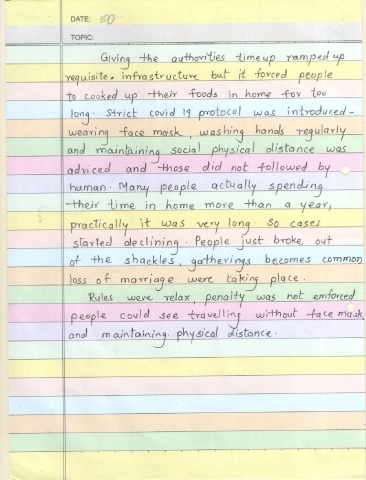 DATE: 50
TOPIC:
Giving the authorities time up ramped up
requisite infrastructure but it forced people
to cooked up their foods in home for too
long. Strict covid 19 protocol was introduced-
wearing face mask, washing hands regularly
and maintaining social physical distance was
adviced and those did not followed by
human. Many people actually spending
their time in home more than a year,
practically it was very long. So cases
started declining. People just broke out
of the shackles, gatherings becomes common
loss of marriage were taking place.
Rules were relax, penalty was not emforced
people could see travelling without face mask
and maintaining physical distance.